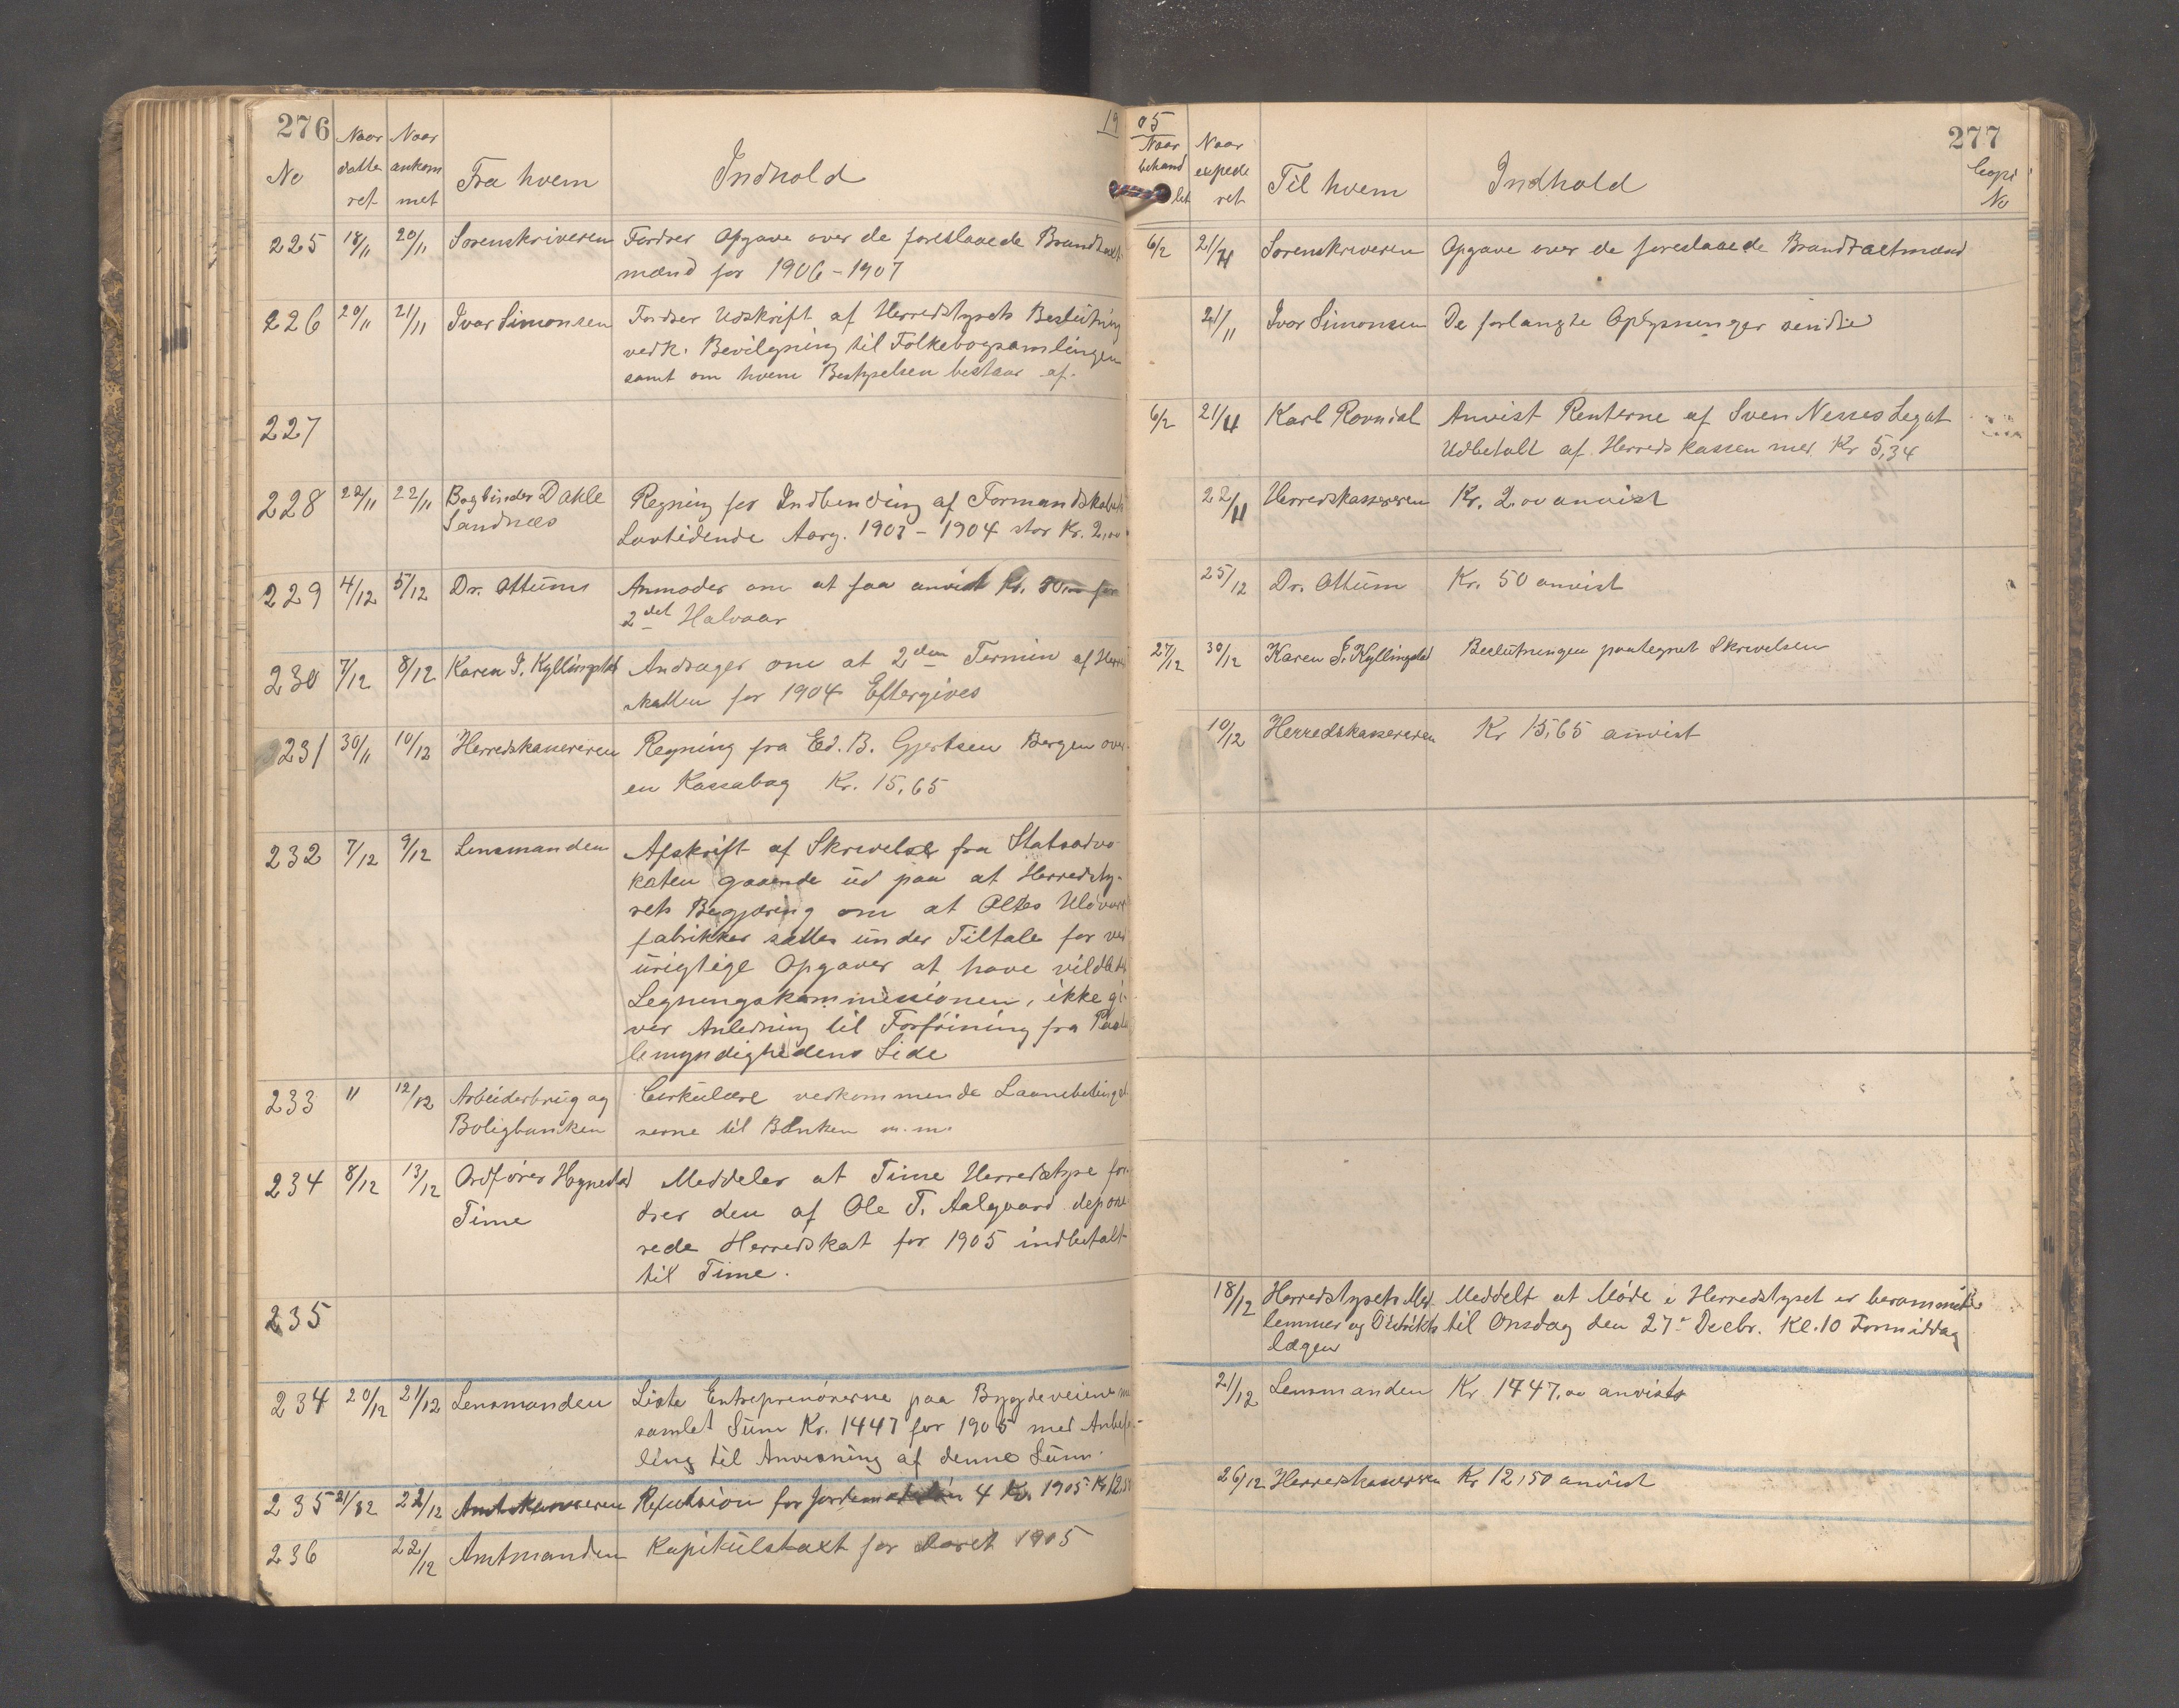 276
19
No
Naar datte ret
Naar ankom met
Fra hvem
Indhold
225 18/11 20/11 Sorenskriveren Fordrer Opgave over de foreslaaede Brandtaxt-
mænd for 1906-1907
226 20/11 21/11 Ivar Simonsen Fordrer Udskrift af Herredstyrets Beslutning
vedk. Bevilgning til Folkebogsamlingen
samt om hvem Bestyrelsen bestaar af.
227
228 22/11 22/11 Bogbinder Dahle Regning for Indbinding af Formandskabets
Sandnæs Lovtidende Aarg. 1903-1904 stor Kr. 2,00
229 4/12 5/12 Dr. Ottums Anmoder om at faa anvist Kr. 50,00 for
2det Halvaar
230 7/12 8/12 Karen I. Kyllingstad Andrager om at 2den Termin af Herre
skatten for 1904 Eftergives
231 30/11 10/12 Herredskassereren Regning fra Ed. B. Gjertsen Bergen over
en Kassabog Kr. 15,65
232 7/12 9/12 Lensmanden Afskrift af Skrivelse fra Statsadvo-
katen gaaende ud paa at Herredsty-
rets Begjæring om at Oltes Uldvare
fabrikker sættes under Tiltale for ved
urigtige Opgaver at have vildledt
Legningskommissionen, ikke gi-
ver Anledning til Forføining fra Paata
lemyndighedens Side
233 " 12/12 Arbeiderbrug og Cirkulære vedkommende Laanebetingel
Boligbanken serne til Banken m.m.
234 8/12 13/12 Ordfører Hognestad Meddeler at Time Herredstyre for
Time drer den af Ole T. Aalgaard depone
rede Herredskat for 1905 indbetalt
til Time.
235
234 20/12 21/12 Lensmanden Liste Entreprenørerne paa Bygdeveiene m
samlet Sum Kr. 1447 for 1905 med Anbefa-
ling til Anvisning af denne Sum.
235 21/12 22/12 Amtskassereren Refusion for Jordemoderen 4 Kv. 1905 Kr 12,50
236 22/12 Amtmanden Kapitulstaxt for Aaret 1905
05
277
Naar behand let
Naar expede ret
Til hvem
Indhold
Copi No
6/2 21/11 Sorenskriveren Opgave over de foreslaaede Brandtaxtmænd
21/11 Ivar Simonsen De forlangte Oplysninger sendte
6/2 21/11 Karl Rovndal Anvist Renterne af Sven Nesses Legat
Udbetalt af Herredskassen med Kr 5,34
22/11 Herredskassereren Kr. 2,00 anvist
25/12 Dr. Ottum Kr. 50 anvist
27/12 30/12 Karen I. Kyllingstad Beslutningen paategnet Skrivelsen
10/12 Herredskassereren Kr 15,65 anvist
18/12 Herredstyrets Med- Meddelt at Møde i Herredstyret er berammet
lemmer og Distrikts til Onsdag den 27de Decbr. Kl. 10 Formiddag
lægen
21/12 Lensmanden Kr. 1447,00 anvist
26/12 Herredskassereren Kr 12,50 anvist